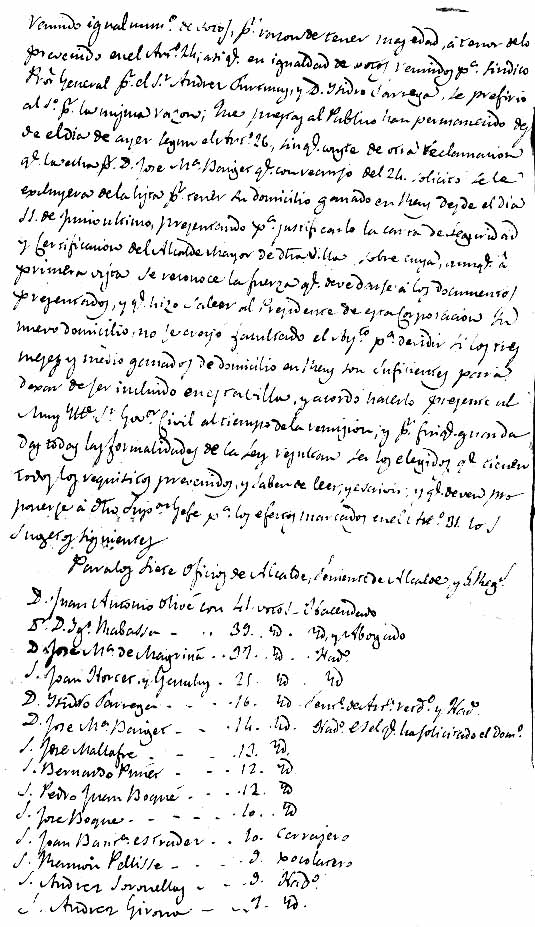 venido igual num.º de votos, p.r razon de tener mas edad, á tenor de lo
prevenido en el Art.º 24, asi q.e en igualdad de votos venidos p.a Sindico
Pror General p.r el S.r Andres y D. Isidro Parrega, se prefirió
al S.r p.r la misma razon; Que puestas al Publico han permanecido des
de el dia de ayer segun el Art.º 26, sin q.e conste de otra reclamacion
q.e la echa p.r D. Jose M.a Barger q.e con recurso del 24 solicitó se le
excluyera de la lista p.r tener su domicilio ganado en Reus desde el dia
11 de Junio ultimo, presentando p.a justificarlo la carta de seguridad
y Certificacion del Alcalde Mayor de dha Villa, sobre cuya, aunq.e á
primera vista se reconoce la fuerza q.e deve darse á los documentos
presentados, y q.e hizo saber al Presidente de esta Corporacion su
nuevo domicilio, no se creyó facultado el Ay.to p.a decidir si los tres
meses y medio ganados de domicilio en Reus son suficientes para
dexar de ser incluido en esta Villa, y acordó hacerlo presente al
Muy Iltre. S.r Gov.or Civil al tiempo de la remision; y p.r fin q.e guarda
das todas las formalidades de la Ley resultan ser los elegidos q.e tienen
todos los requisitos prevenidos, y saben de leer, y escrivir, y q.e deven pro
ponerse á dho Sup.or Gefe p.a los efectos marcados en el Art.º 31 los
Sugetos siguientes
Para los siete Oficios de Alcalde, Teniente de Alcalde, y 5 Reg.s
D. Juan Antonio Olivé con 41 votos - Hacendado
D.r D. Ig.o Mabassa - - 39. id. id. y Abogado
D. Jose M.a de Magriná - 37. id. Had.º
S. Juan Horcer y - 25. id. id
D. Isidro Parrega - - - 16. id y Had.º
D. Jose M.a Barger - - - 14. id. Had.º es el q.e ha solicitado el Dom.º
S. Jose Mallafre - - - 13. id.
S. Bernardo - - - 12. id.
S. Pedro Juan Boqué - - - 12. id
S. Jose Boque - - - - - 10. id
S. Joan Baut.a Estrader - - 10. Cerrajero
S. Ramon Pellisse - - - 9. xocolatero
S. Andres Soronellas - - 9. Had.º
S. Andres Girona - - 9. id.